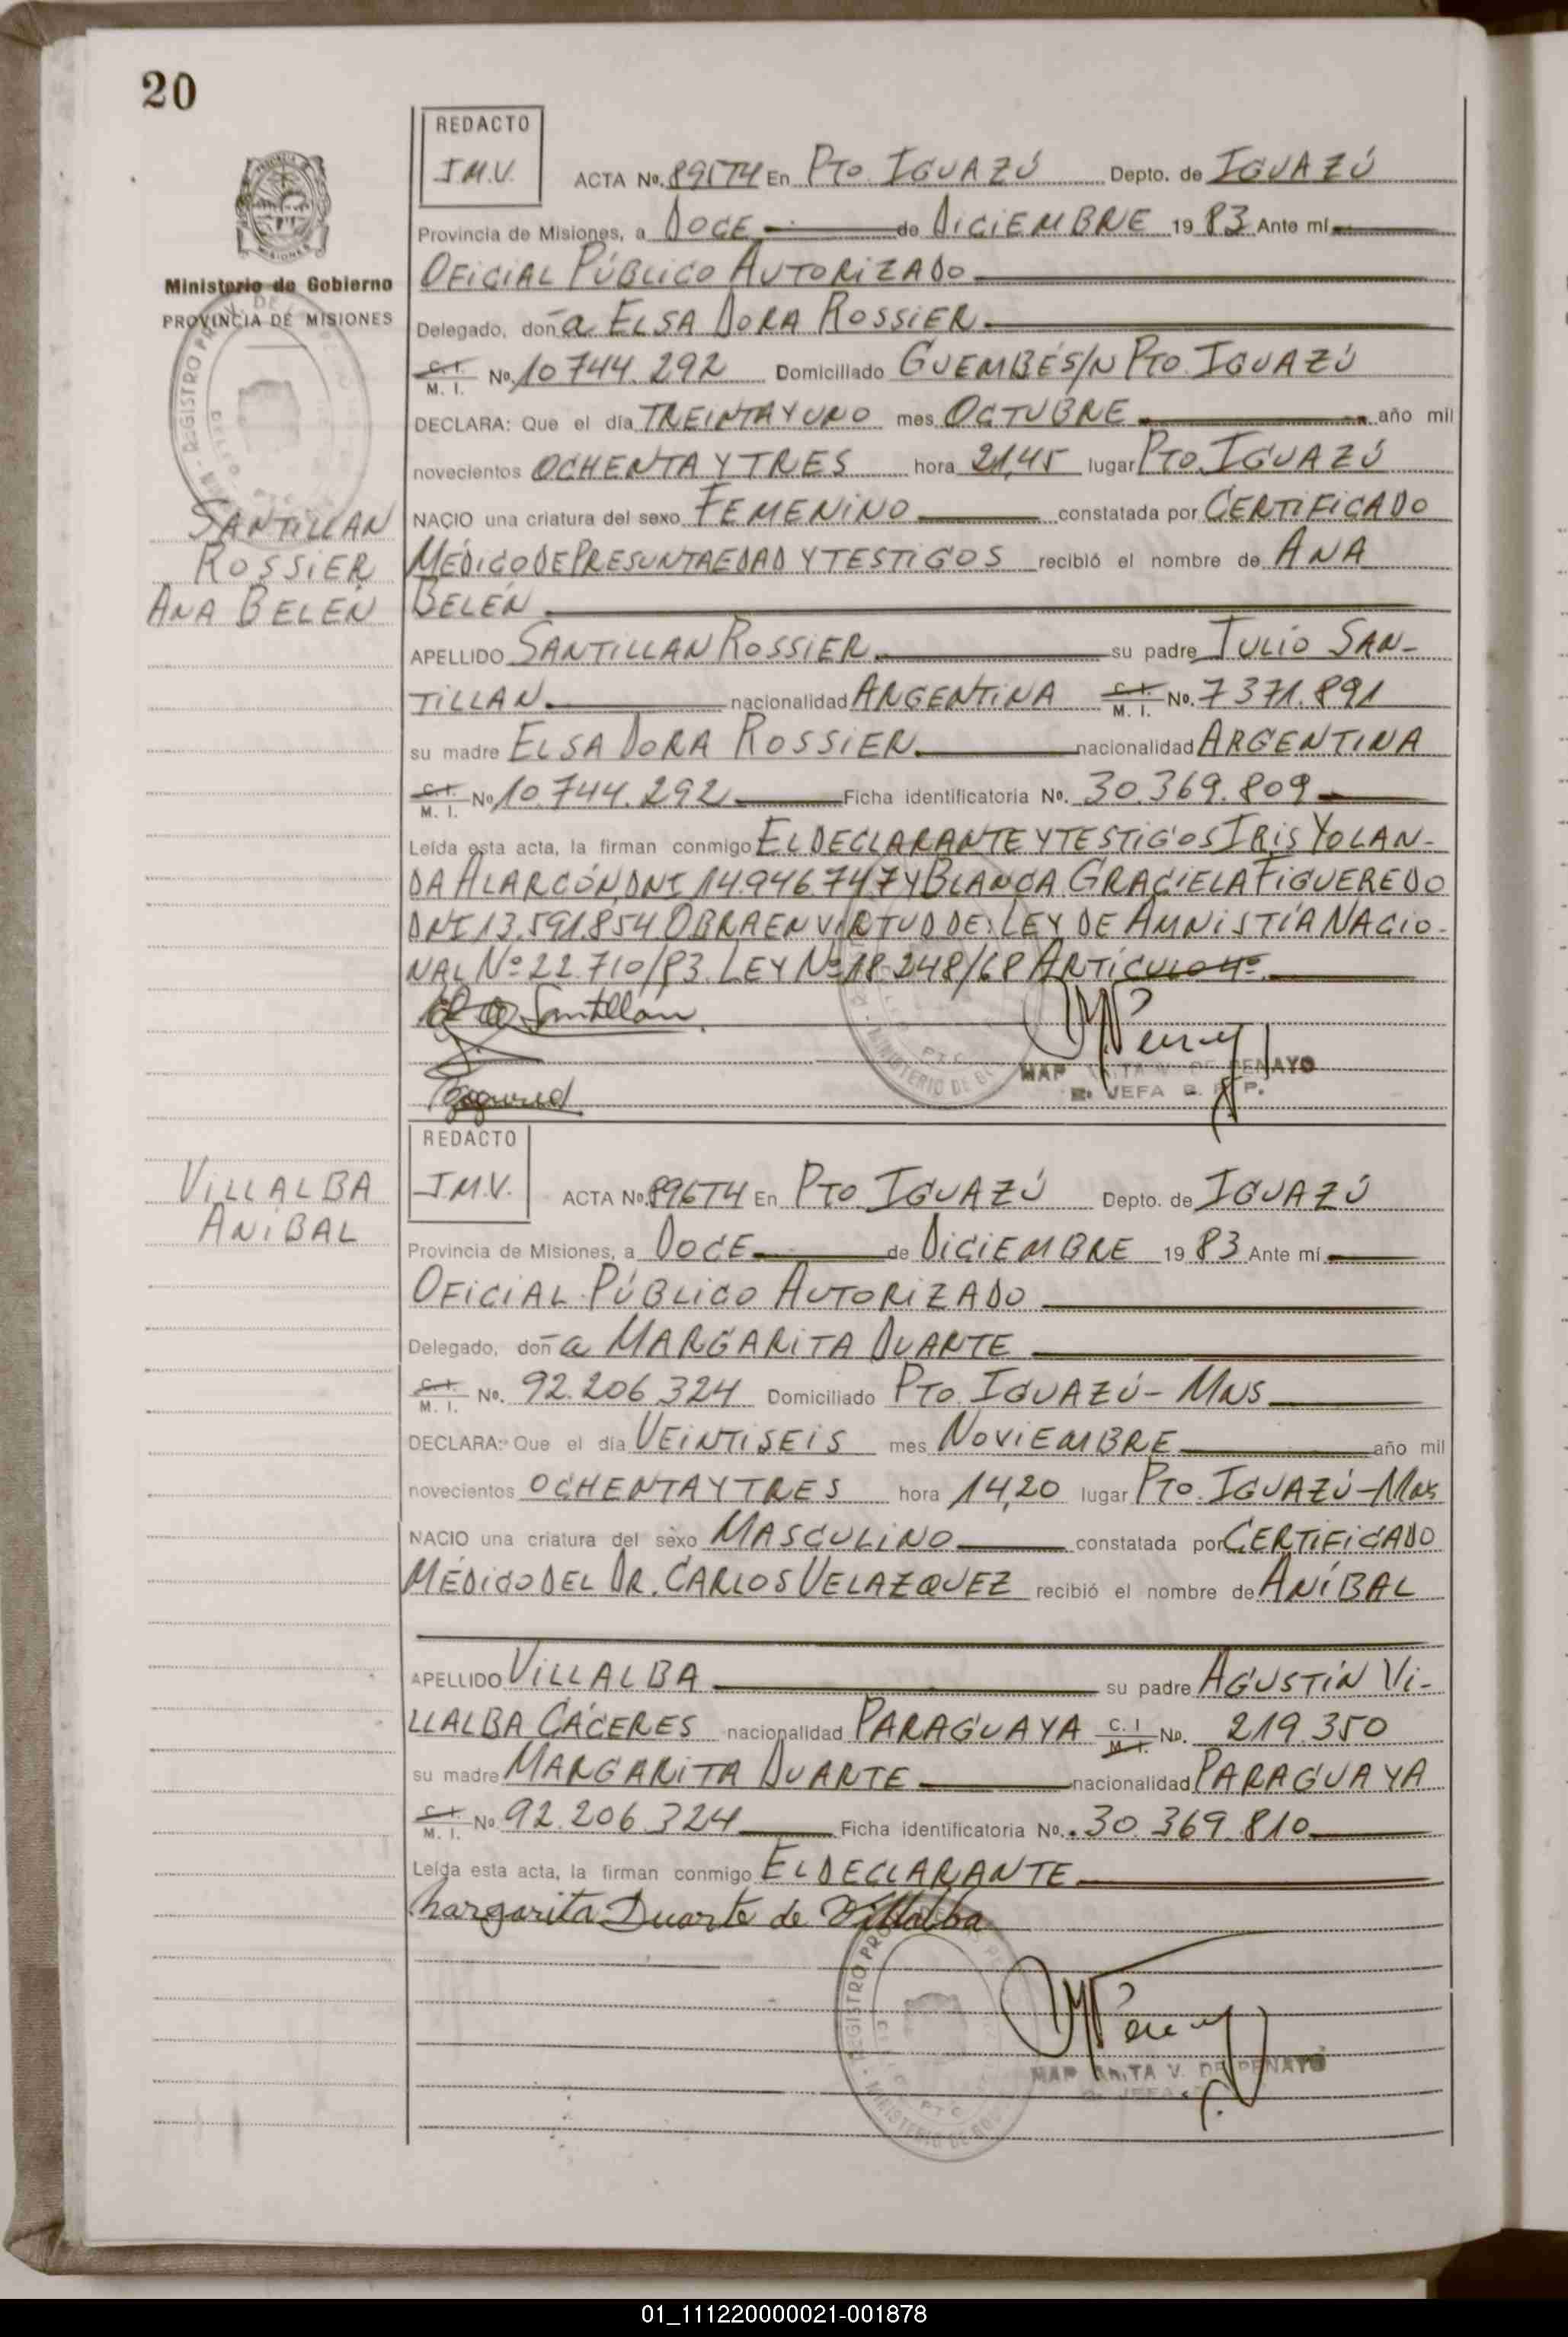 20
REDACTO
J.M.V.
ACTA No. 895T4 En Pto. IGUAZÚ Depto. de IGUAZÚ
Provincia de Misiones, a DOCE de DICIEMBRE 19 83 Ante mí
OFICIAL PÚBLICO AUTORIZADO
Delegado, doña ELSA DORA ROSSIER
C.I. M. I. No. 10.744.292 Domiciliado GUEMBÉ S/N PTO. IGUAZÚ
DECLARA: Que el día TREINTA Y UNO mes OCTUBRE año mil
novecientos OCHENTA Y TRES hora 21,45 lugar PTO. IGUAZÚ
NACIO una criatura del sexo FEMENINO constatada por CERTIFICADO
MÉDICO DE PRESUNTA EDAD Y TESTIGOS recibió el nombre de ANA
BELÉN
APELLIDO SANTILLAN ROSSIER su padre JULIO SAN-
TILLAN nacionalidad ARGENTINA C.I. M. I. No. 7371.891
su madre ELSA DORA ROSSIER nacionalidad ARGENTINA
C.I. M. I. No 10.744.292 Ficha identificatoria No. 30.369.809
Leída esta acta, la firman conmigo EL DECLARANTE Y TESTIGOS IRIS YOLAN-
DA ALARCÓN DNI 14.946747 Y BLANCA GRACIELA FIGUEREDO
DNI 13.591.854. OBRA EN VIRTUD DE: LEY DE AMNISTÍA NACIO-
NAL Nº 22.710/83. LEY Nº 18.248/68 ARTÍCULO 4º.
Santillán
MAR ITA V. DE PENAYO
JEFA
Ministerio de Gobierno
PROVINCIA DE MISIONES
SANTILLAN
ROSSIER
ANA BELÉN
REDACTO
J.M.V.
ACTA No. 896T4 En PTO. IGUAZÚ Depto. de IGUAZÚ
Provincia de Misiones, a DOCE de DICIEMBRE 19 83 Ante mí
OFICIAL PÚBLICO AUTORIZADO
Delegado, doña MARGARITA DUARTE
C.I. M. I. No. 92.206.324 Domiciliado PTO. IGUAZÚ - MNS
DECLARA: Que el día VEINTISEIS mes NOVIEMBRE año mil
novecientos OCHENTA Y TRES hora 14,20 lugar PTO. IGUAZÚ - Mns
NACIO una criatura del sexo MASCULINO constatada por CERTIFICADO
MÉDICO DEL DR. CARLOS VELAZQUEZ recibió el nombre de ANÍBAL
APELLIDO VILLALBA su padre AGUSTÍN VI-
LLALBA CÁCERES nacionalidad PARAGUAYA C. I M. I. No. 219.350
su madre MARGARITA DUARTE nacionalidad PARAGUAYA
C.I. M. I. No 92.206.324 Ficha identificatoria No. 30.369.810
Leída esta acta, la firman conmigo EL DECLARANTE
Margarita Duarte de Villalba
MAR ITA V. DE PENAYO
JEFA
VILLALBA
ANÍBAL
01_111220000021-001878